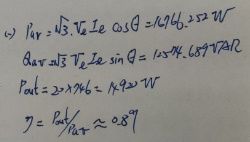 (c) Pav = √3 · Vl Il cosθ = 16766.252 W
Qav = √3 Vl Il sinθ = 12574.689 VAR
Pout = 20×746 = 14920 W
η = Pout/Pav ≈ 0.89